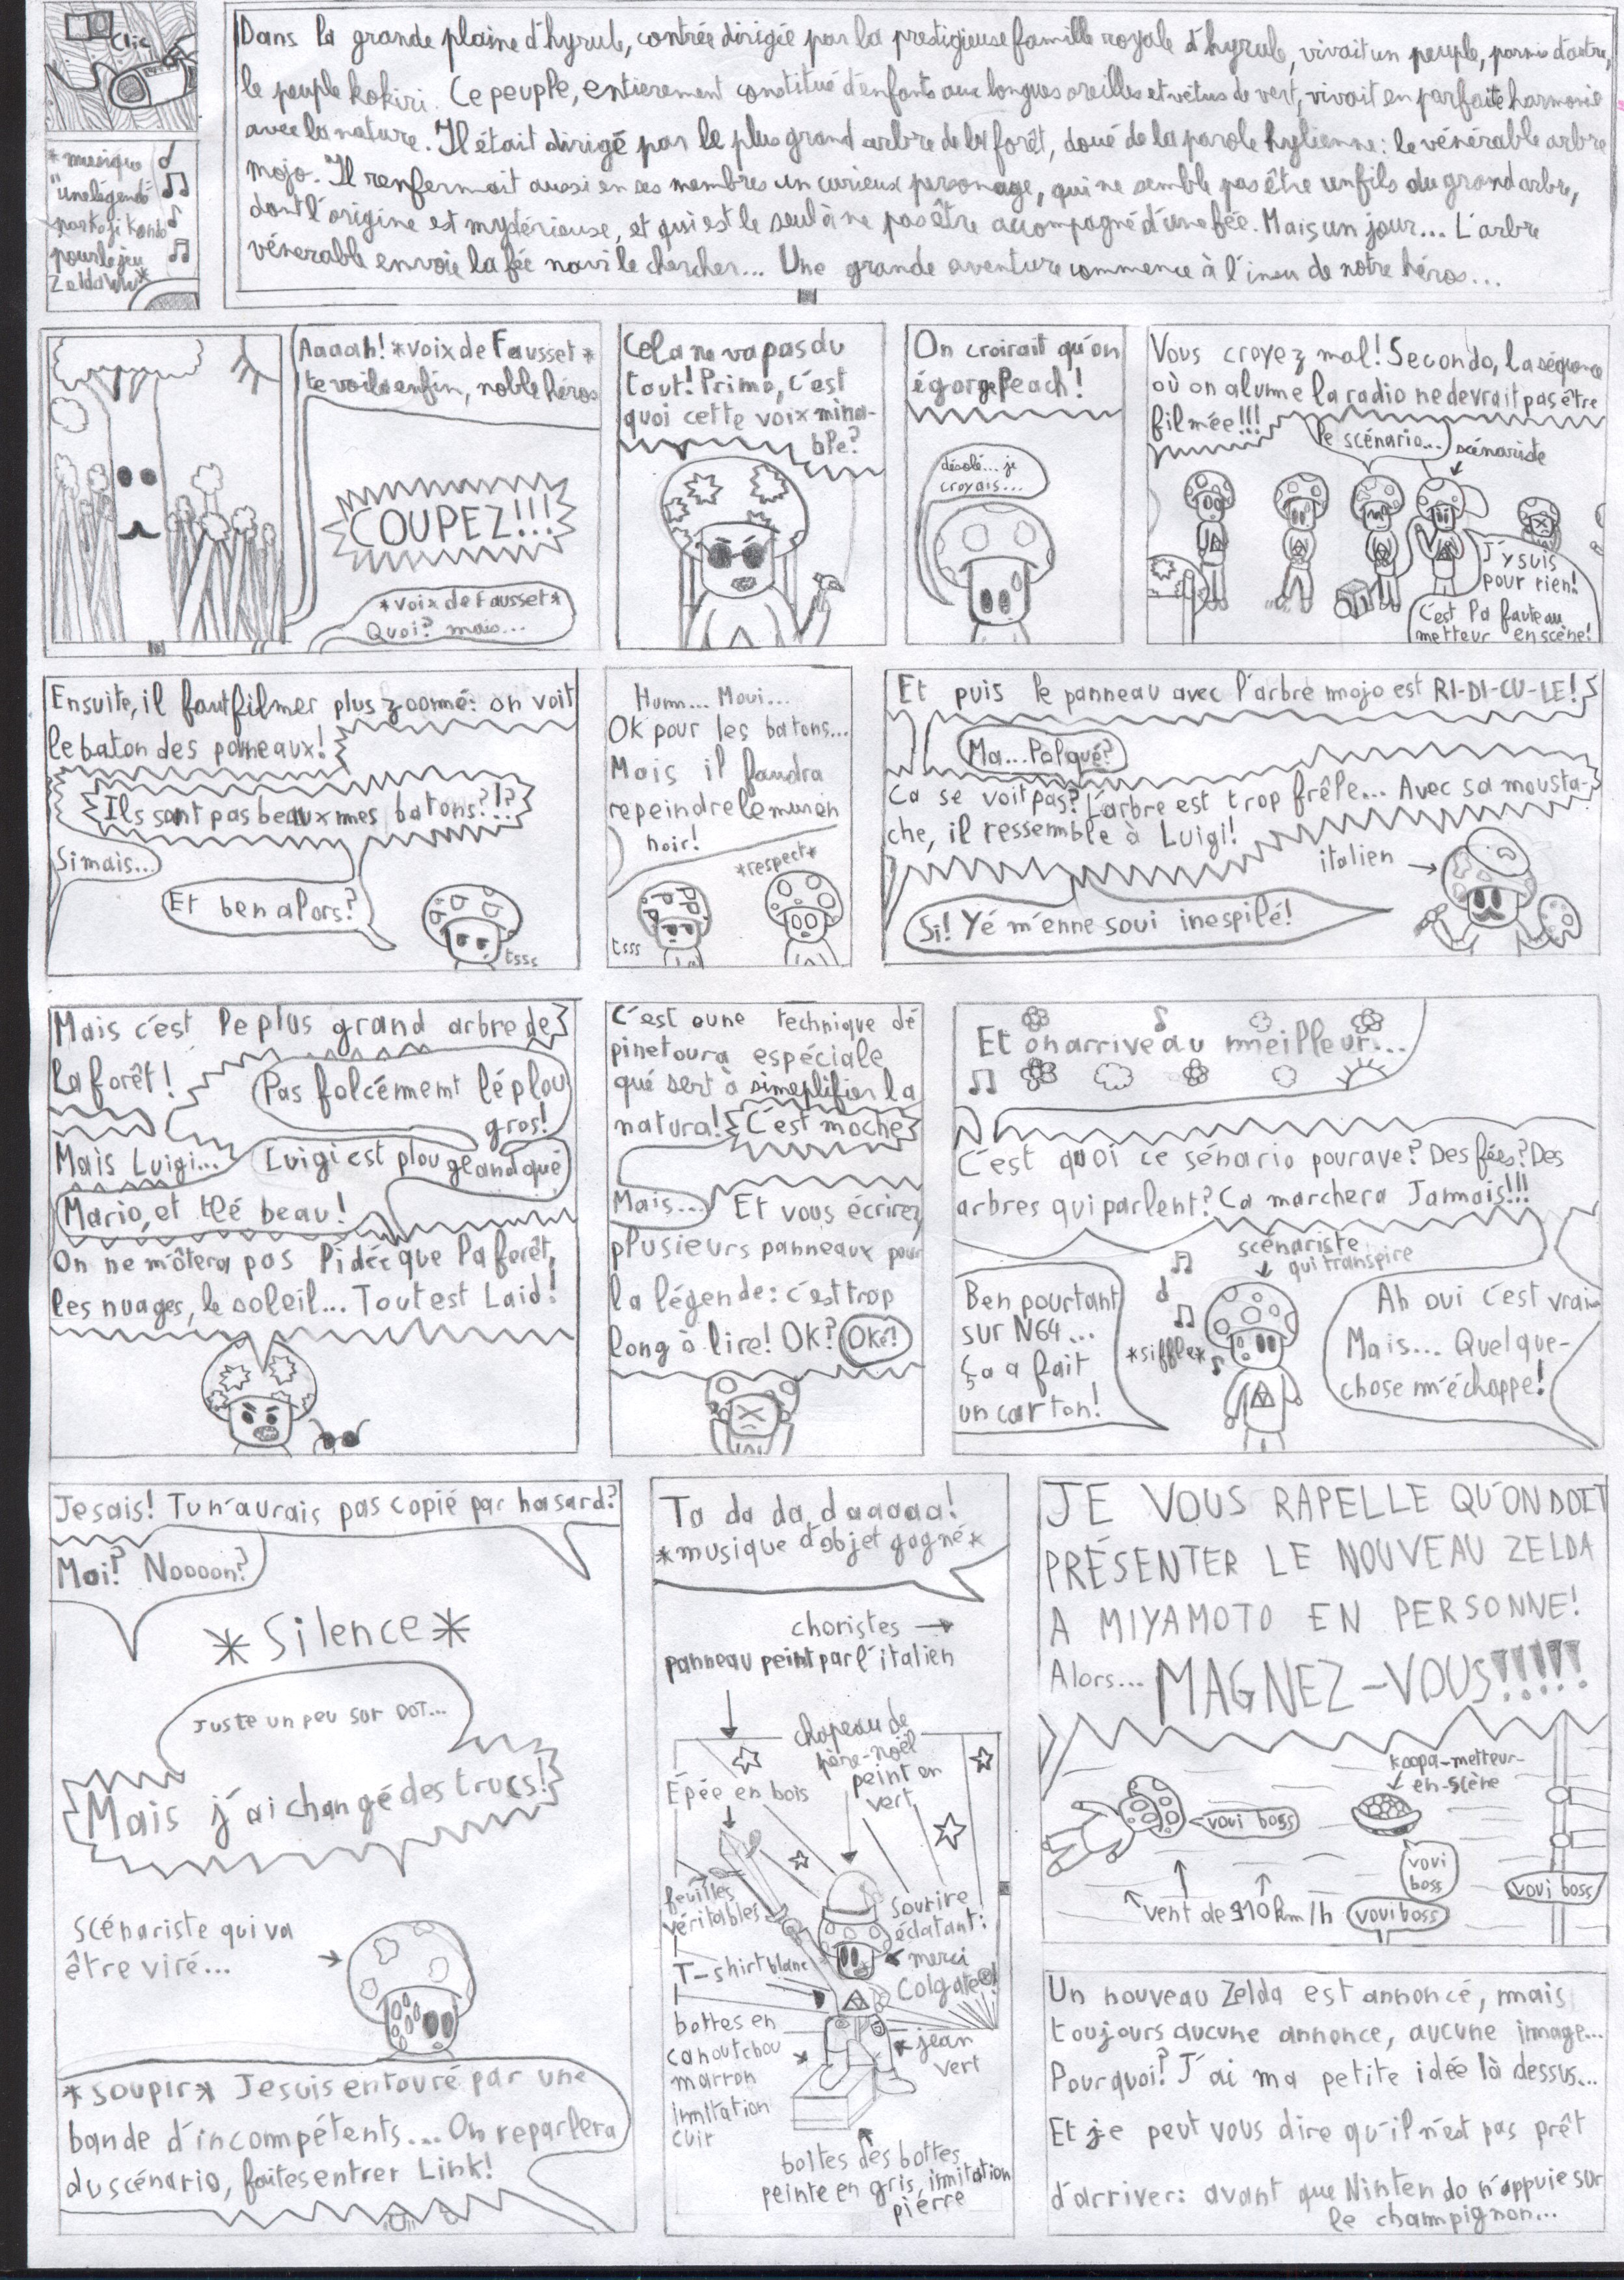 Clic
*musique
"une légende"
par kofi kondo
pour le jeu
Zelda WW*
Dans la grande plaine d'hyrule, contrée dirigée par la prestigieuse famille royale d'hyrule, vivait un peuple, parmis d'autre,
le peuple kokiri. Ce peuple, entierement constitué d'enfants aux longues oreilles et vêtus de vert, vivait en parfaite harmonie
avec la nature. Il était dirigé par le plus grand arbre de la forêt, doué de la parole hylienne: le vénérable arbre
mojo. Il renfermait aussi en ses membres un curieux personage, qui ne semble pas être un fils du grand arbre,
dont l'origine est mystérieuse, et qui est le seul à ne pas être accompagné d'une fée. Mais un jour... L'arbre
vénerable envoie la fée navi le chercher... Une grande aventure commence à l'insu de notre héros...
Aaaah! *voix de Fausset*
te voila enfin, noble héros
COUPEZ!!!
*voix de Fausset*
Quoi? mais...
Cela ne va pas du
tout! Primo, c'est
quoi cette voix mina-
ble?
On croirait qu'on
égorge Peach!
désolé... je
croyais...
Vous croyez mal! Secondo, la séquence
où on alume la radio ne devrait pas être
filmée!!!
le scénario...
scénariste
J'y suis
pour rien!
C'est la faute au
metteur en scène!
Ensuite, il faut filmer plus zoomé: on voit
le baton des panneaux!
Ils sont pas beaux mes batons?!?
Si mais...
Et ben alors?
tsss
Humm... Moui...
OK pour les batons...
Mais il faudra
repeindre le mur en
noir!
*respect*
tsss
Et puis le panneau avec l'arbre mojo est RI-DI-CU-LE!
Ma... Polqué?
Ca se voit pas? L'arbre est trop frêle... Avec sa mousta-
che, il ressemble à Luigi!
italien
Si! Yé m'enne soui inespilé!
Mais c'est le plus grand arbre de
la forêt!
Pas folcément lé plou
gros!
Mais Luigi...
Luigi est plou gland qué
Mario, et tlé beau!
On ne m'ôtera pas l'idée que la forêt,
les nuages, le soleil... Tout est Laid!
C'est oune technique dé
pinetoura espéciale
qué sert à simeplifier la
natura!
C'est moche
Mais...
Et vous écrirez
plusieurs panneaux pour
la légende: c'est trop
long à lire! OK?
OKé!
Et on arrive au meilleur...
C'est quoi ce sénario pourave? Des fées? Des
arbres qui parlent? Ca marchera Jamais!!!
scénariste
qui transpire
Ben pourtant
sur N64...
ça a fait
un carton!
*siffle*
Ah oui c'est vrai
Mais... Quelque-
chose m'échappe!
Je sais! Tu n'aurais pas copié par hasard?
Moi? Noooon?
*Silence*
Juste un peu sur OOT...
Mais j'ai changé des trucs!
scénariste qui va
être viré...
*soupir* Je suis entouré par une
bande d'incompétents... On reparlera
du scénario, faites entrer Link!
Ta da da daaaaa!
*musique d'objet gagné*
choristes
panneau peint par l'italien
chapeau de
père-noël
peint en
vert
Épée en bois
feuilles
véritables
Sourire
éclatant:
merci
Colgate®!
T-shirt blanc
bottes en
caoutchou
marron
imitation
cuir
jean
vert
boîtes des bottes
peinte en gris, imitation
pierre
JE VOUS RAPELLE QU'ON DOIT
PRÉSENTER LE NOUVEAU ZELDA
A MIYAMOTO EN PERSONNE!
Alors... MAGNEZ-VOUS!!!!!
koopa-metteur-
en-scène
voui boss
voui
boss
voui boss
vent de 310 km/h
voui boss
Un nouveau Zelda est annoncé, mais
toujours aucune annonce, aucune image...
Pourquoi? J'ai ma petite idée là dessus...
Et je peut vous dire qu'il n'est pas prêt
d'arriver: avant que Nintendo n'appuie sur
le champignon...